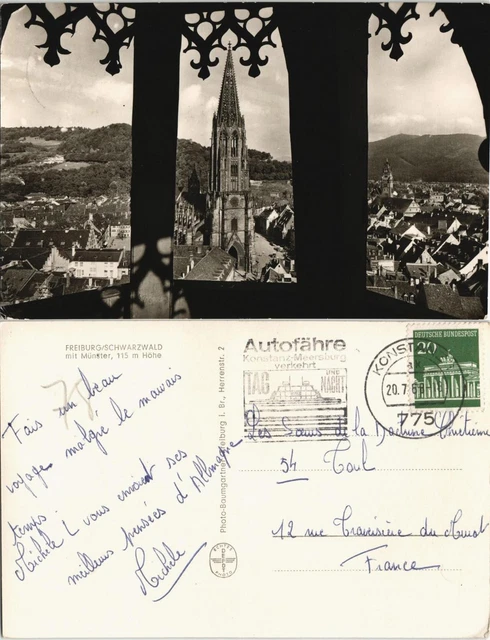 FREIBURG/SCHWARZWALD
mit Münster, 115 m Höhe
Fais un beau
voyage malgré le mauvais
temps.
Michèle L vous envoient ses
meilleurs pensées d'Allemagne
Michèle
Photo-Baumgartner, Freiburg i. Br., Herrenstr. 2
Autofähre
Konstanz-Meersburg
verkehrt
TAG UND NACHT
KONST
20.7.6
775
20
DEUTSCHE BUNDESPOST
Les Sœurs de la Doctrine Chrétienne
54 Toul
12 rue du
France